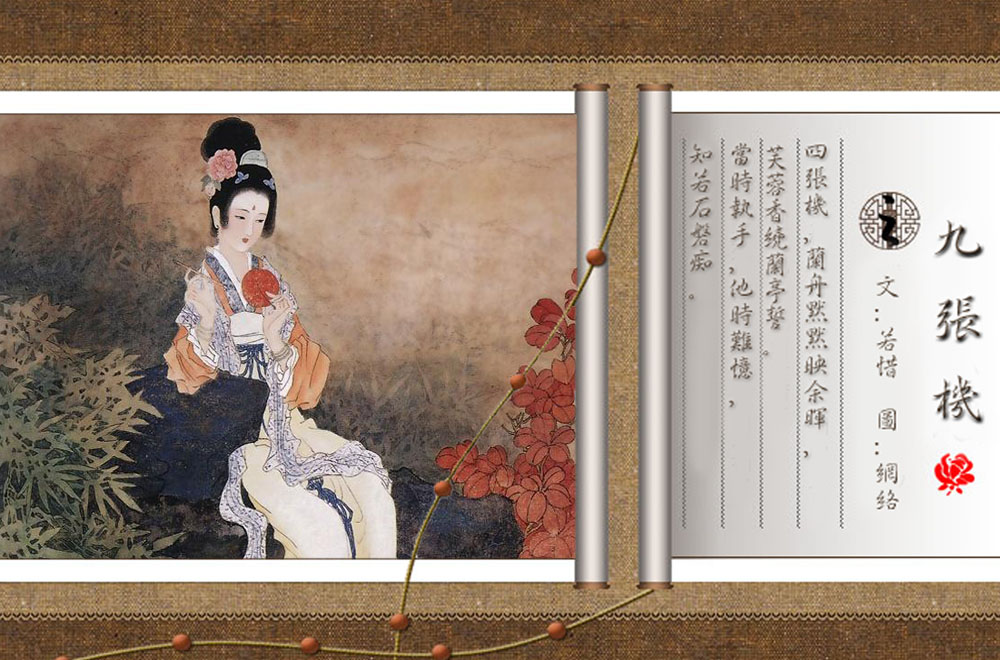 九張機
之
文：若惜 圖：網絡
四張機，蘭舟默默映余暉，
芙蓉香繞蘭亭誓。
當時執手，池時難憶，
知若石磐痴。